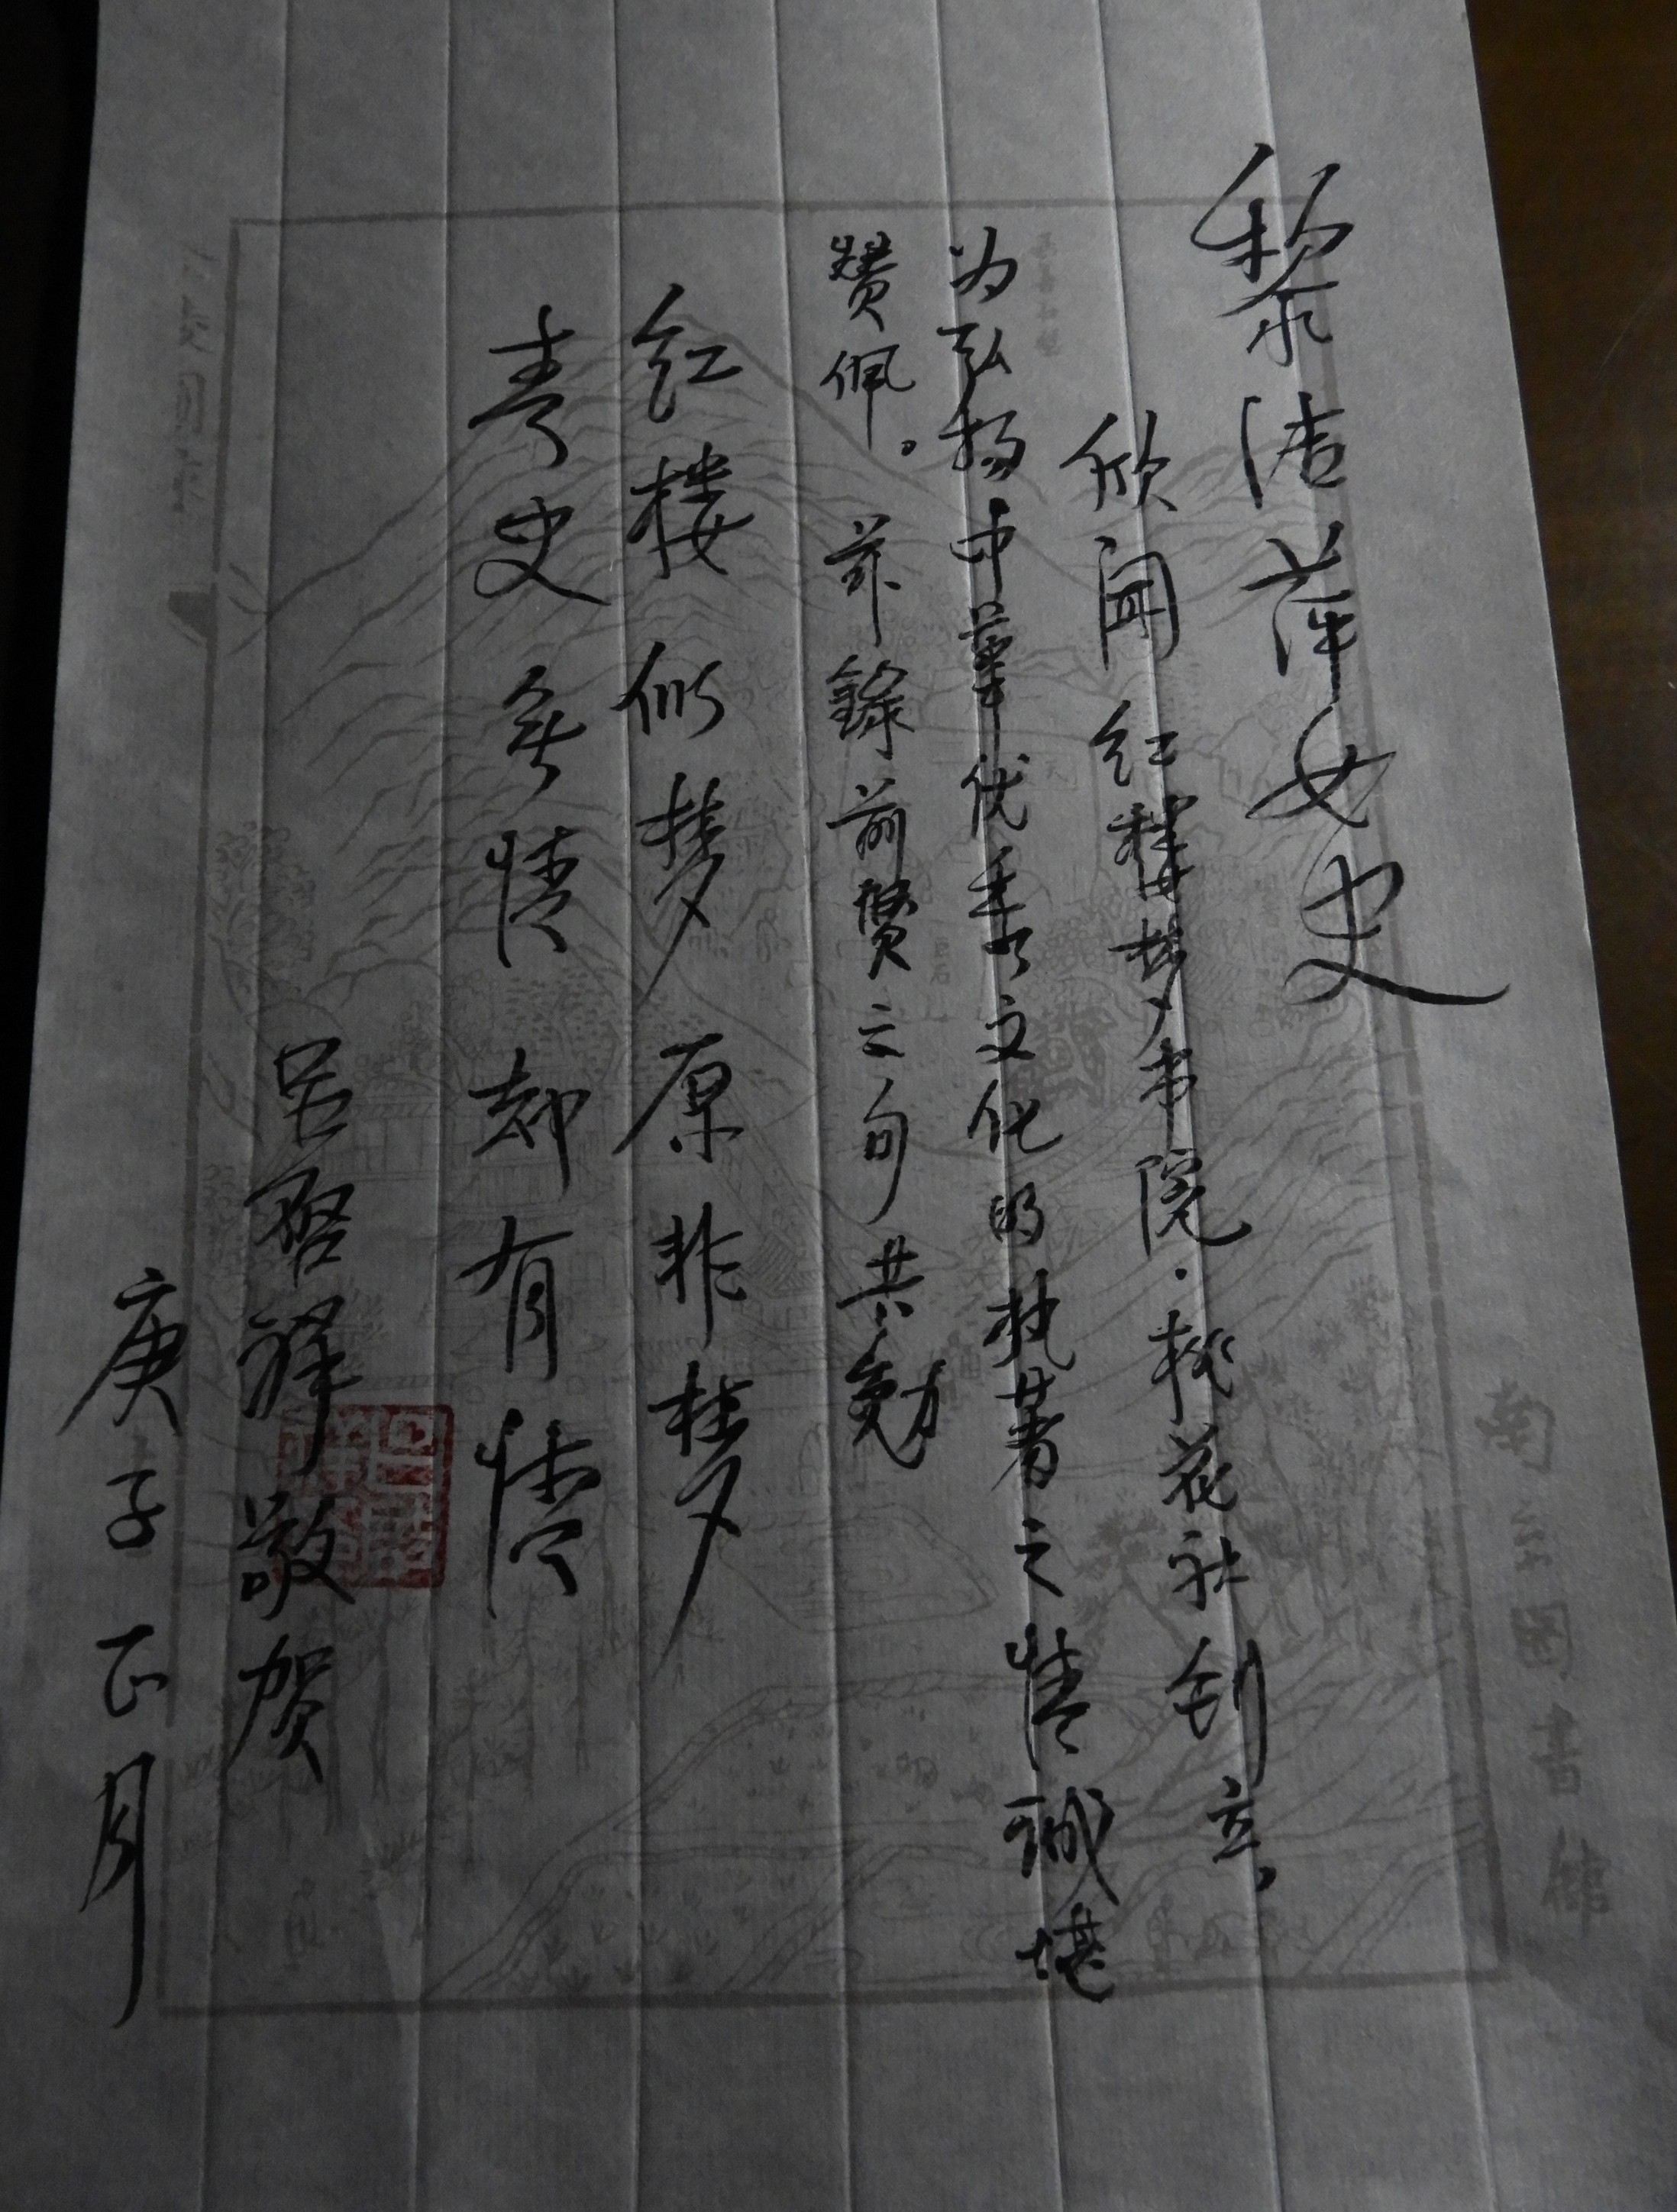 黎洁萍女史
欣闻红楼梦书院·桃花社创立，
为弘扬中华优秀文化的执著之情诚堪
赞佩。兹錄前贤二句共勉
红楼似梦原非梦
青史无情却有情
吕启祥敬贺
庚子正月
圖書館